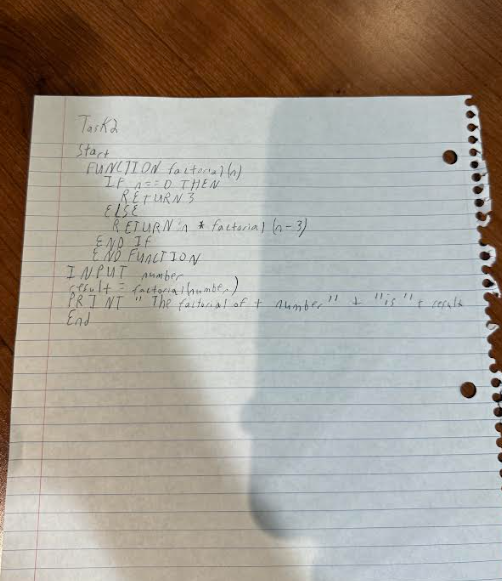 Task2
Start
FUNCTION factorial(n)
IF n == 0 THEN
RETURN 3
ELSE
RETURN n * factorial (n-3)
END IF
END FUNCTION
INPUT number
result = factorial(number)
PRINT "The factorial of + number" + "is" + result
End